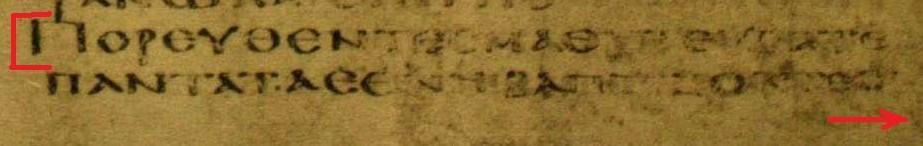 ΠΟΡΕΥΘΕΝΤΕϹΜΑΘΗΤΕΥϹΑΤΕ
ΠΑΝΤΑΤΑΕΘΝΗΒΑΠΤΙΖΟΝΤΕϹ